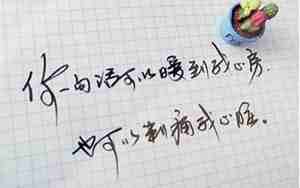 你一句话可以暖到我心房.
也可以刺痛我心脏。